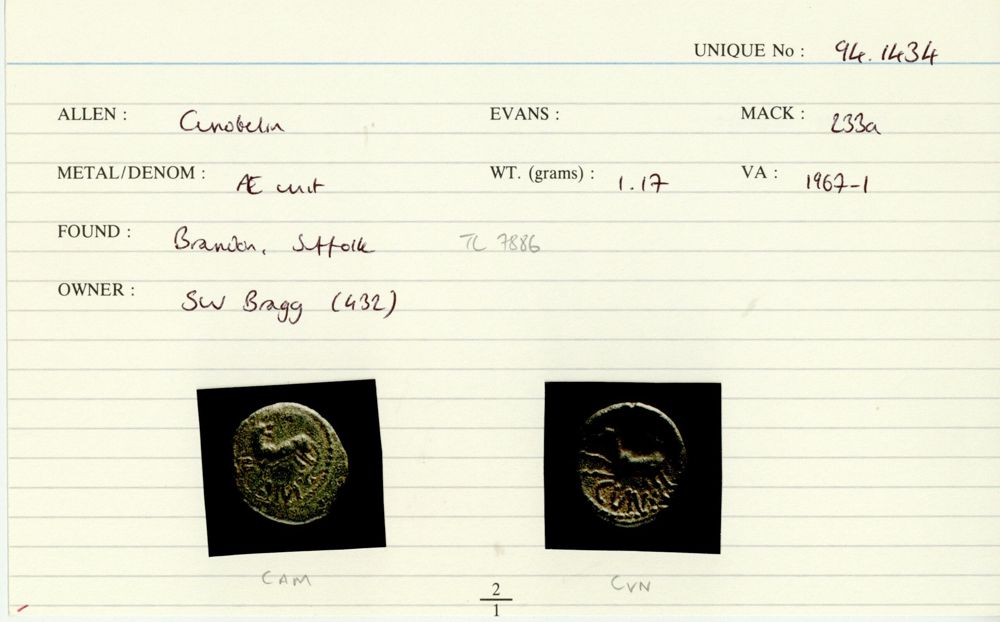 UNIQUE No : 94.1434
ALLEN : Cunobelin EVANS : MACK : 233a
METAL/DENOM : Æ unit WT. (grams) : 1.17 VA : 1967-1
FOUND : Brandon, Suffolk TL 7886
OWNER : SW Bragg (432)
CAM CVN
2
1